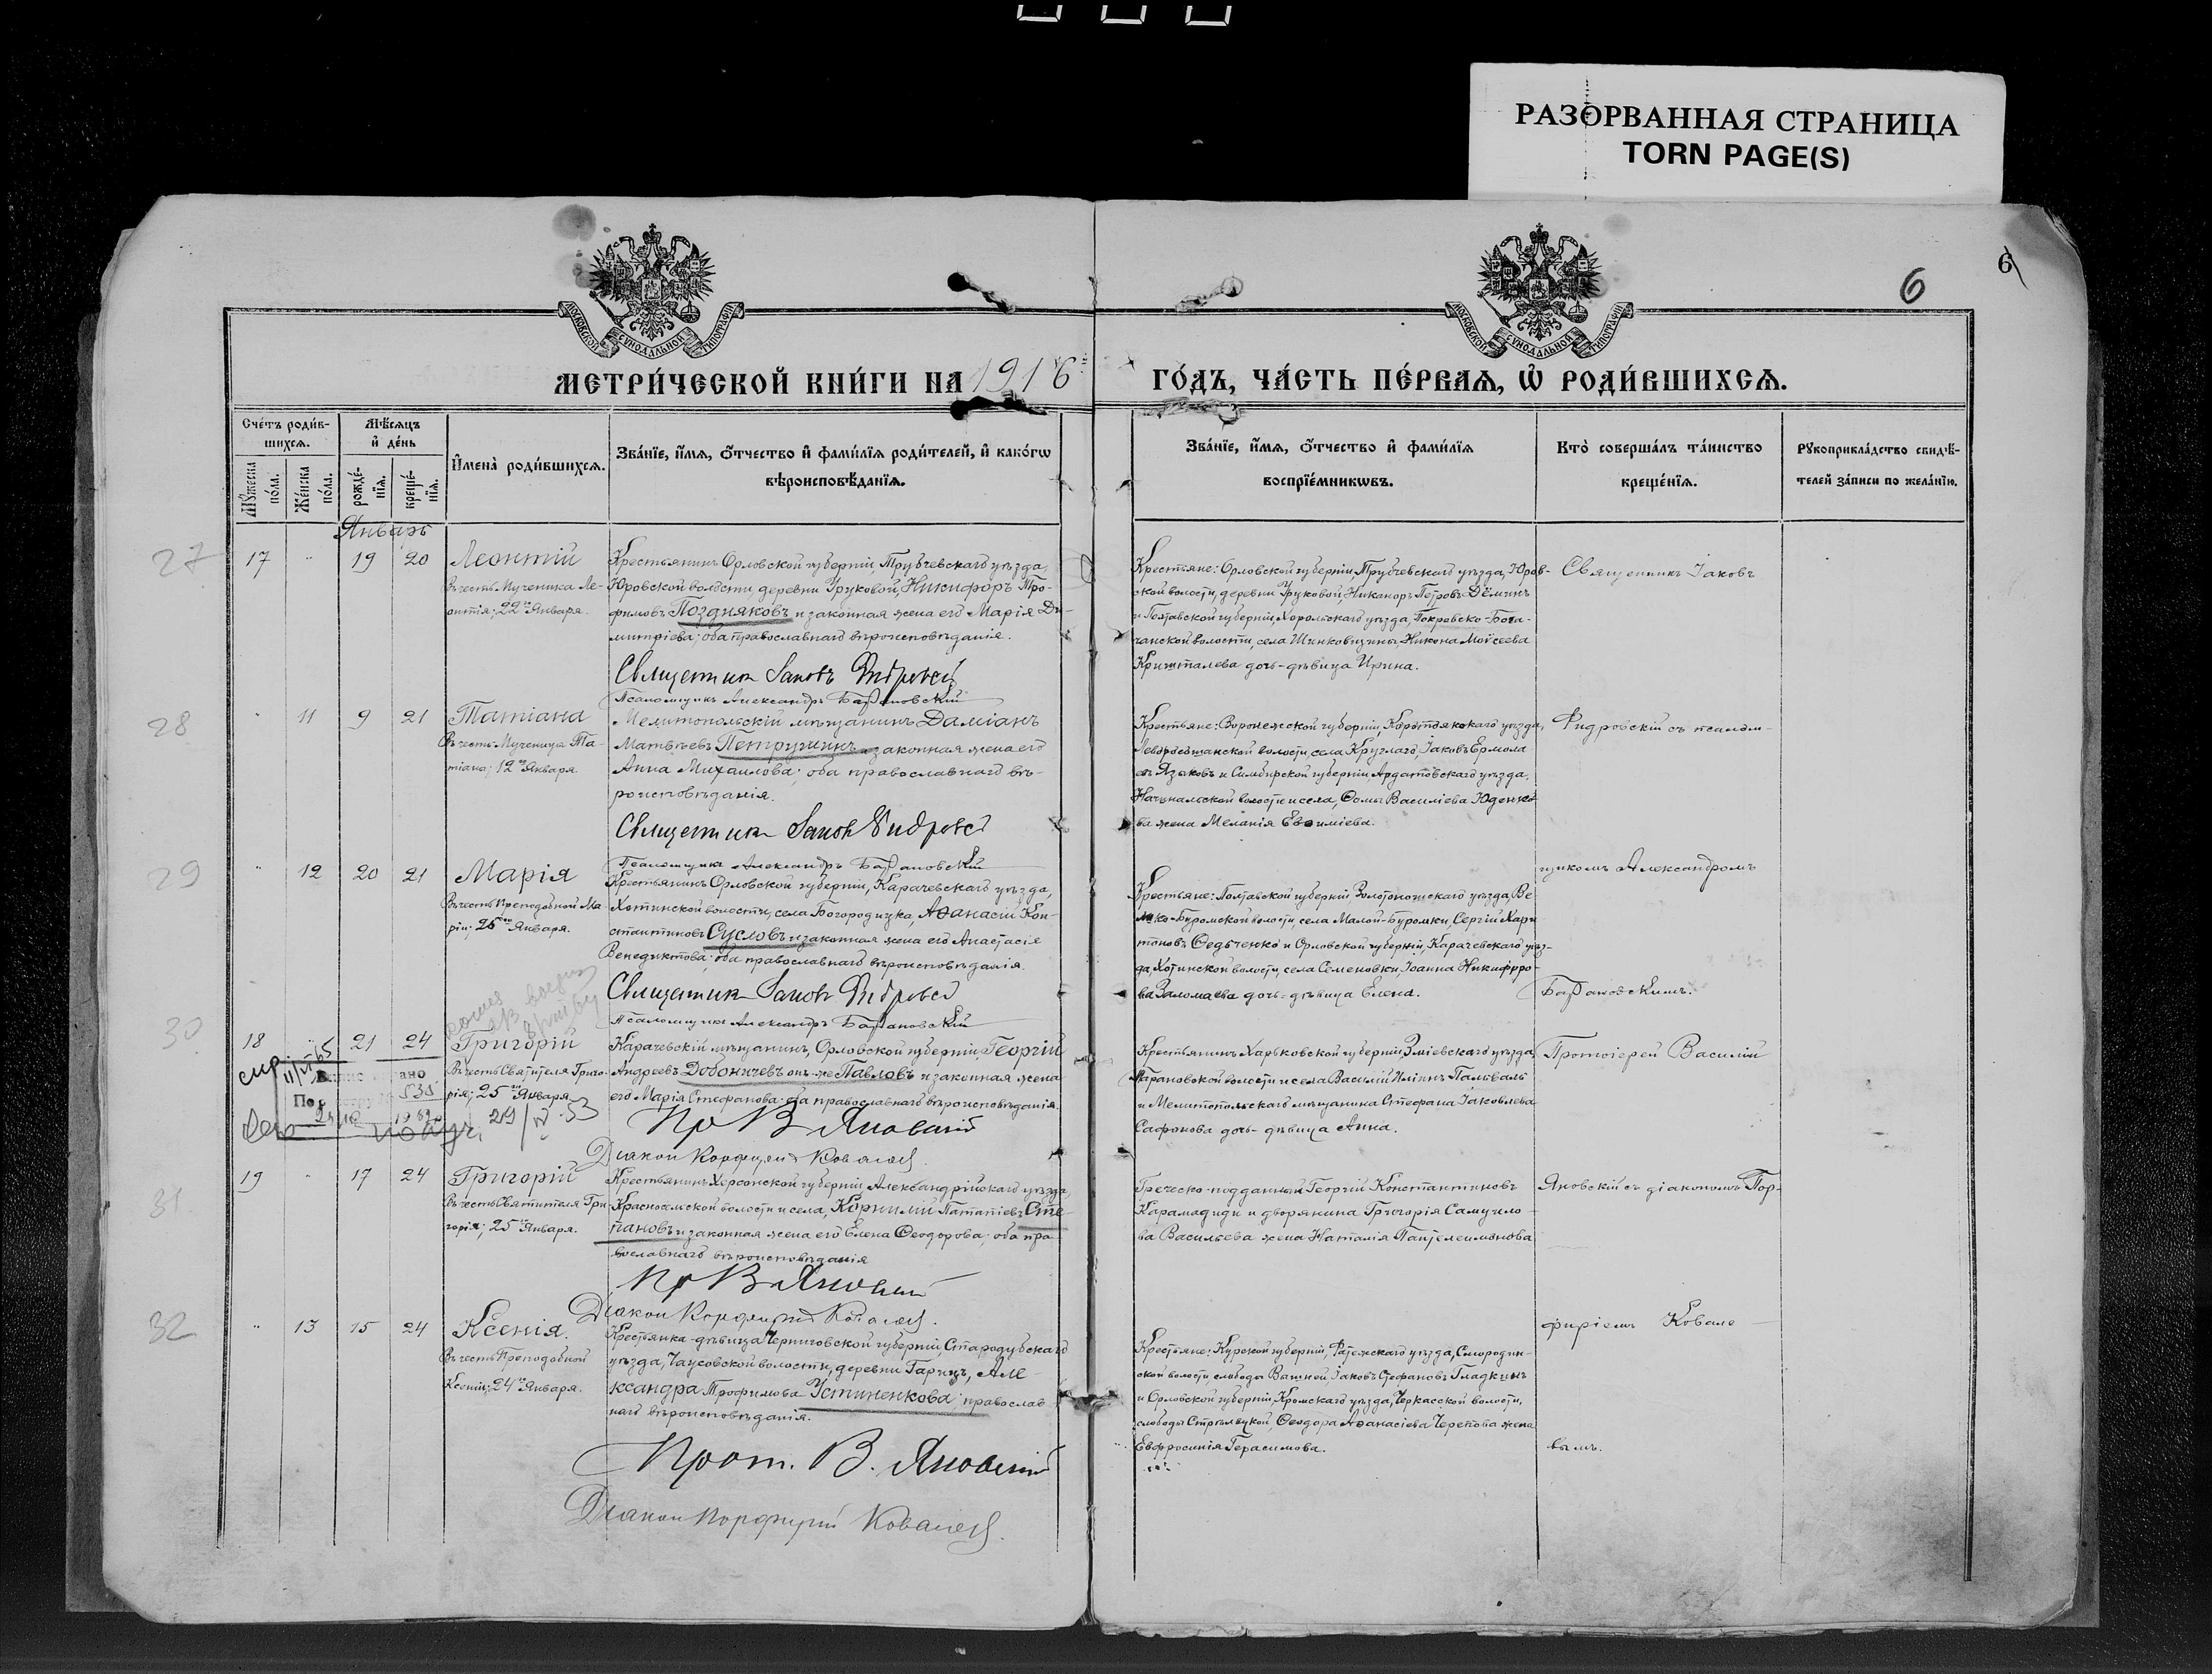 РАЗОРВАННАЯ СТРАНИЦА
TORN PAGE(S)
6
6
МОСКОВСКОЙ СУНОДАЛЬНОЙ ТИПОГРАФІИ
МОСКОВСКОЙ СУНОДАЛЬНОЙ ТИПОГРАФІИ
МЕТРИ́ЧЕСКОЙ КНИ́ГИ НА 1916 ГО́ДЪ, ЧА́СТЬ ПЕ́РВАѦ, Ѡ҆ РОДИ́ВШИХСѦ.
Сче́тъ роди́в-
шихсѧ.
Мꙋ́жеска по́ла.
Же́нска по́ла.
Мѣ́сѧцъ
и҆ де́нь
рожде́-
нїѧ.
креще́-
нїѧ.
И҆мена̀ роди́вшихсѧ.
Зва́нїе, и҆́мѧ, ѻ҆́тчество и҆ фами́лїѧ роди́телей, и҆ како́гѡ
вѣроисповѣ́данїѧ.
Зва́нїе, и҆́мѧ, ѻ҆́тчество и҆ фами́лїѧ
воспрїе́мникѡвъ.
Кто̀ соверша́лъ та́инство
креще́нїѧ.
Рꙋкоприкла́дство свидѣ́-
телей за́писи по жела́нїю.
Январь
27
17 " 19 20 Леонтій
Въ честь Мученика Ле-
онтія; 22го Января.
Крестьянинъ Орловской губерніи, Трубчевскаго уѣзда,
Юровской волости, деревни Груковой, Никифоръ Тро-
фимовъ Поздняковъ и законная жена его Марія Ди-
митріева; оба православнаго вѣроисповѣданія.
Священникъ Іаковъ
Псаломщикъ Александръ
Крестьяне: Орловской губерніи, Трубчевскаго уѣзда, Юров-
ской волости, деревни Груковой, Никаноръ Петровъ Дёминъ
и Полтавской губерніи, Хорольскаго уѣзда, Покровско-Бога-
чанской волости, села Никона Моѵсеева
Кришталева дочь-дѣвица Ирина.
Священникъ Іаковъ
28
" 11 9 21 Татіана
Въ честь Мученицы Та-
тіаны; 12го Января.
Мелитопольскій мѣщанинъ Даміанъ
Матвѣевъ и законная жена его
Анна Михаилова; оба православнаго вѣ-
роисповѣданія.
Священникъ Іаковъ
Псаломщикъ Александръ
Крестьяне: Воронежской губерніи, Коротоякскаго уѣзда,
волости, села Круглаго, Іаковъ Ермола
евъ Языковъ и Симбирской губерніи Ардатовскаго уѣзда,
волости и села, Ѳомы Василіева
ва жена Меланія Евѳиміева.
съ псалом-
29
" 12 20 21 Марія
Въ честь Преподобной Ма-
ріи; 26го Января.
Крестьянинъ Орловской губерніи, Карачевскаго уѣзда,
Хотинской волости, села Богородицка, Аѳанасій Кон-
стантиновъ Сусловъ и законная жена его Анастасія
Венедиктова; оба православнаго вѣроисповѣданія.
Священникъ Іаковъ
Псаломщикъ Александръ
щикомъ Александромъ
Крестьяне: Полтавской губерніи Золотоношскаго уѣзда, Ве-
лико-Буромской волости, села Малой-Буромки, Сергій Хари
тоновъ Ѳедьченко и Орловской губерніи, Карачевскаго уѣз-
да, Хотинской волости, села Семеновки, Іоанна Никифоро-
ва Заломаева дочь-дѣвица Елена.
30
18 " 21 24 Григорій
Въ честь Святителя Григо-
рія; 25го Января.
29/IV 53
Карачевскій мѣщанинъ, Орловской губерніи, Георгій
Андреевъ Добоничевъ онъ-же Павловъ и законная жена
его Марія Стефанова; оба православнаго вѣроисповѣданія.
Пр В Яновскій
Діаконъ Порфирій Ковалевъ.
Крестьянинъ Харьковской губерніи Зміевскаго уѣзда,
Тарановской волости и села Василій Иліинъ
и Мелитопольскаго мѣщанина Стефана Іаковлева
Сафонова дочь-дѣвица Анна.
Протоіерей Василій
31
19 " 17 24 Григорій
Въ честь Святителя Гри-
горія; 25го Января.
Крестьянинъ Херсонской губерніи Александрійскаго уѣзда,
Красносельской волости и села, Корнилій Степановъ
и законная жена его Елена Ѳеодорова; оба пра-
вославнаго вѣроисповѣданія
Пр В Яновскій
Діаконъ Порфирій Ковалевъ.
Греческо-подданный Георгій Константиновъ
и дворянина Григорія Самуило
ва Васильева жена Наталія Пантелеимонова
Яновскій съ діакономъ Пор-
32
" 13 15 24 Ксенія.
Въ честь Преподобной
Ксеніи; 24го Января.
Крестьянка-дѣвица Черниговской губерніи, Стародубскаго
уѣзда, волости, деревни Гарцъ, Але-
ксандра Трофимова Устиненкова; православ
наго вѣроисповѣданія.
Прот. В. Яновскій
Діаконъ Порфирій Ковалевъ.
фиріемъ Ковале-
Крестьяне: Курской губерніи, Фатежскаго уѣзда, Смородин-
ской волости, слободы Іаковъ Стефановъ Гладкинъ
и Орловской губерніи, Кромскаго уѣзда, Черкасской волости,
слободы Стрѣлецкой, Ѳеодора Аѳанасіева Черепова жена
Евфросинія Герасимова.
вымъ.